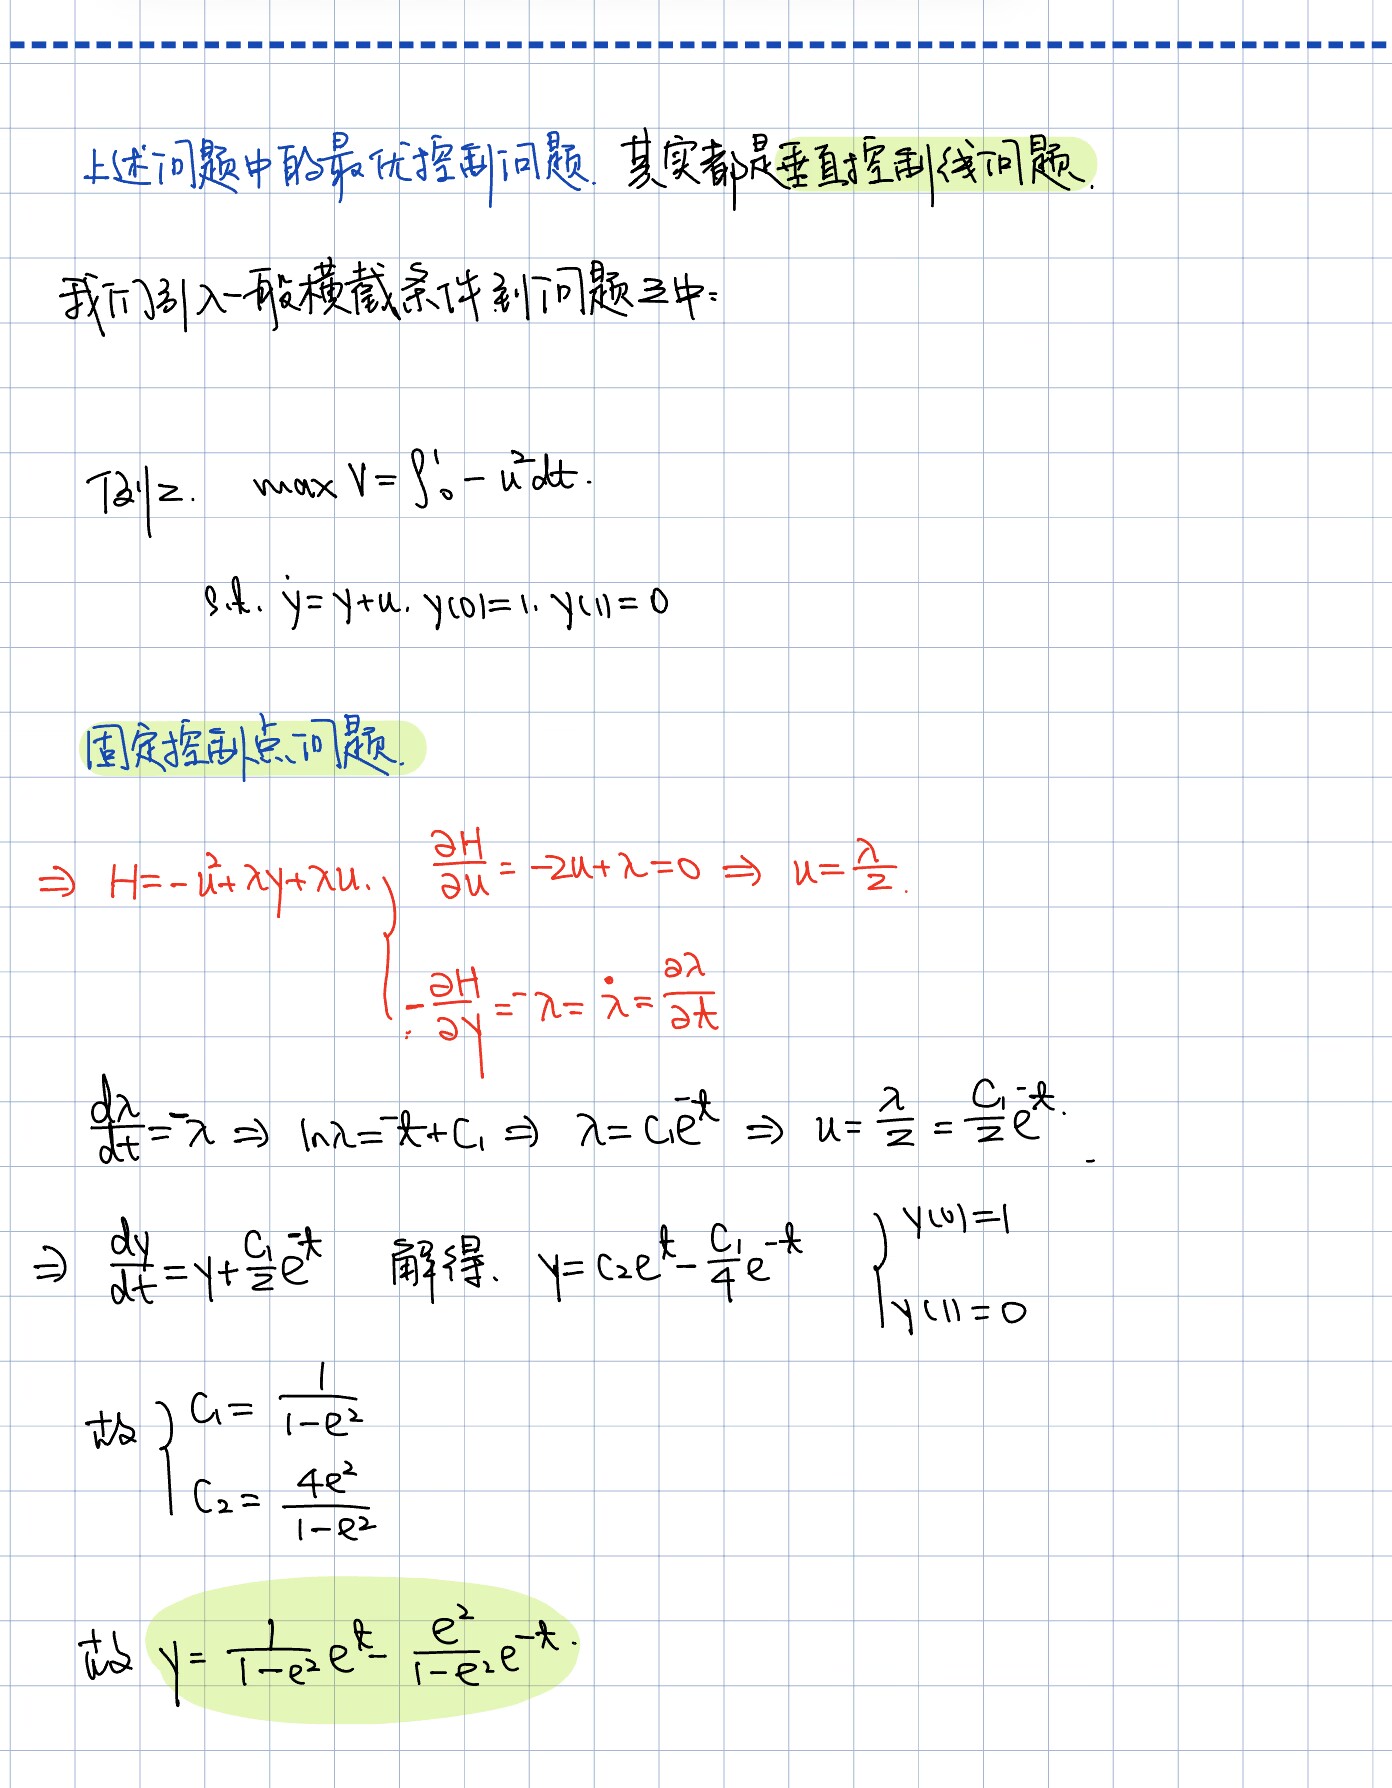 上述问题中的最优控制问题. 其实都是垂直控制线问题.
我们引入一般横截条件到问题之中:
例2. max V = ∫₀¹ -u²dt.
s.t. ẏ = y+u. y(0)=1. y(1)=0
固定控制点问题.
⇒ H = -u²+λy+λu. { ∂H/∂u = -2u+λ=0 ⇒ u=λ/2.
-∂H/∂y = -λ = λ̇ = ∂λ/∂t
dλ/dt = -λ ⇒ lnλ = -t+C₁ ⇒ λ = C₁e^-t ⇒ u = λ/2 = C₁/2 e^-t.
⇒ dy/dt = y + C₁/2 e^-t 解得. y = C₂e^t - C₁/4 e^-t { y(0)=1
y(1)=0
故 { C₁ = 1/(1-e²)
C₂ = 4e²/(1-e²)
故 y = 1/(1-e²) e^t - e²/(1-e²) e^-t.